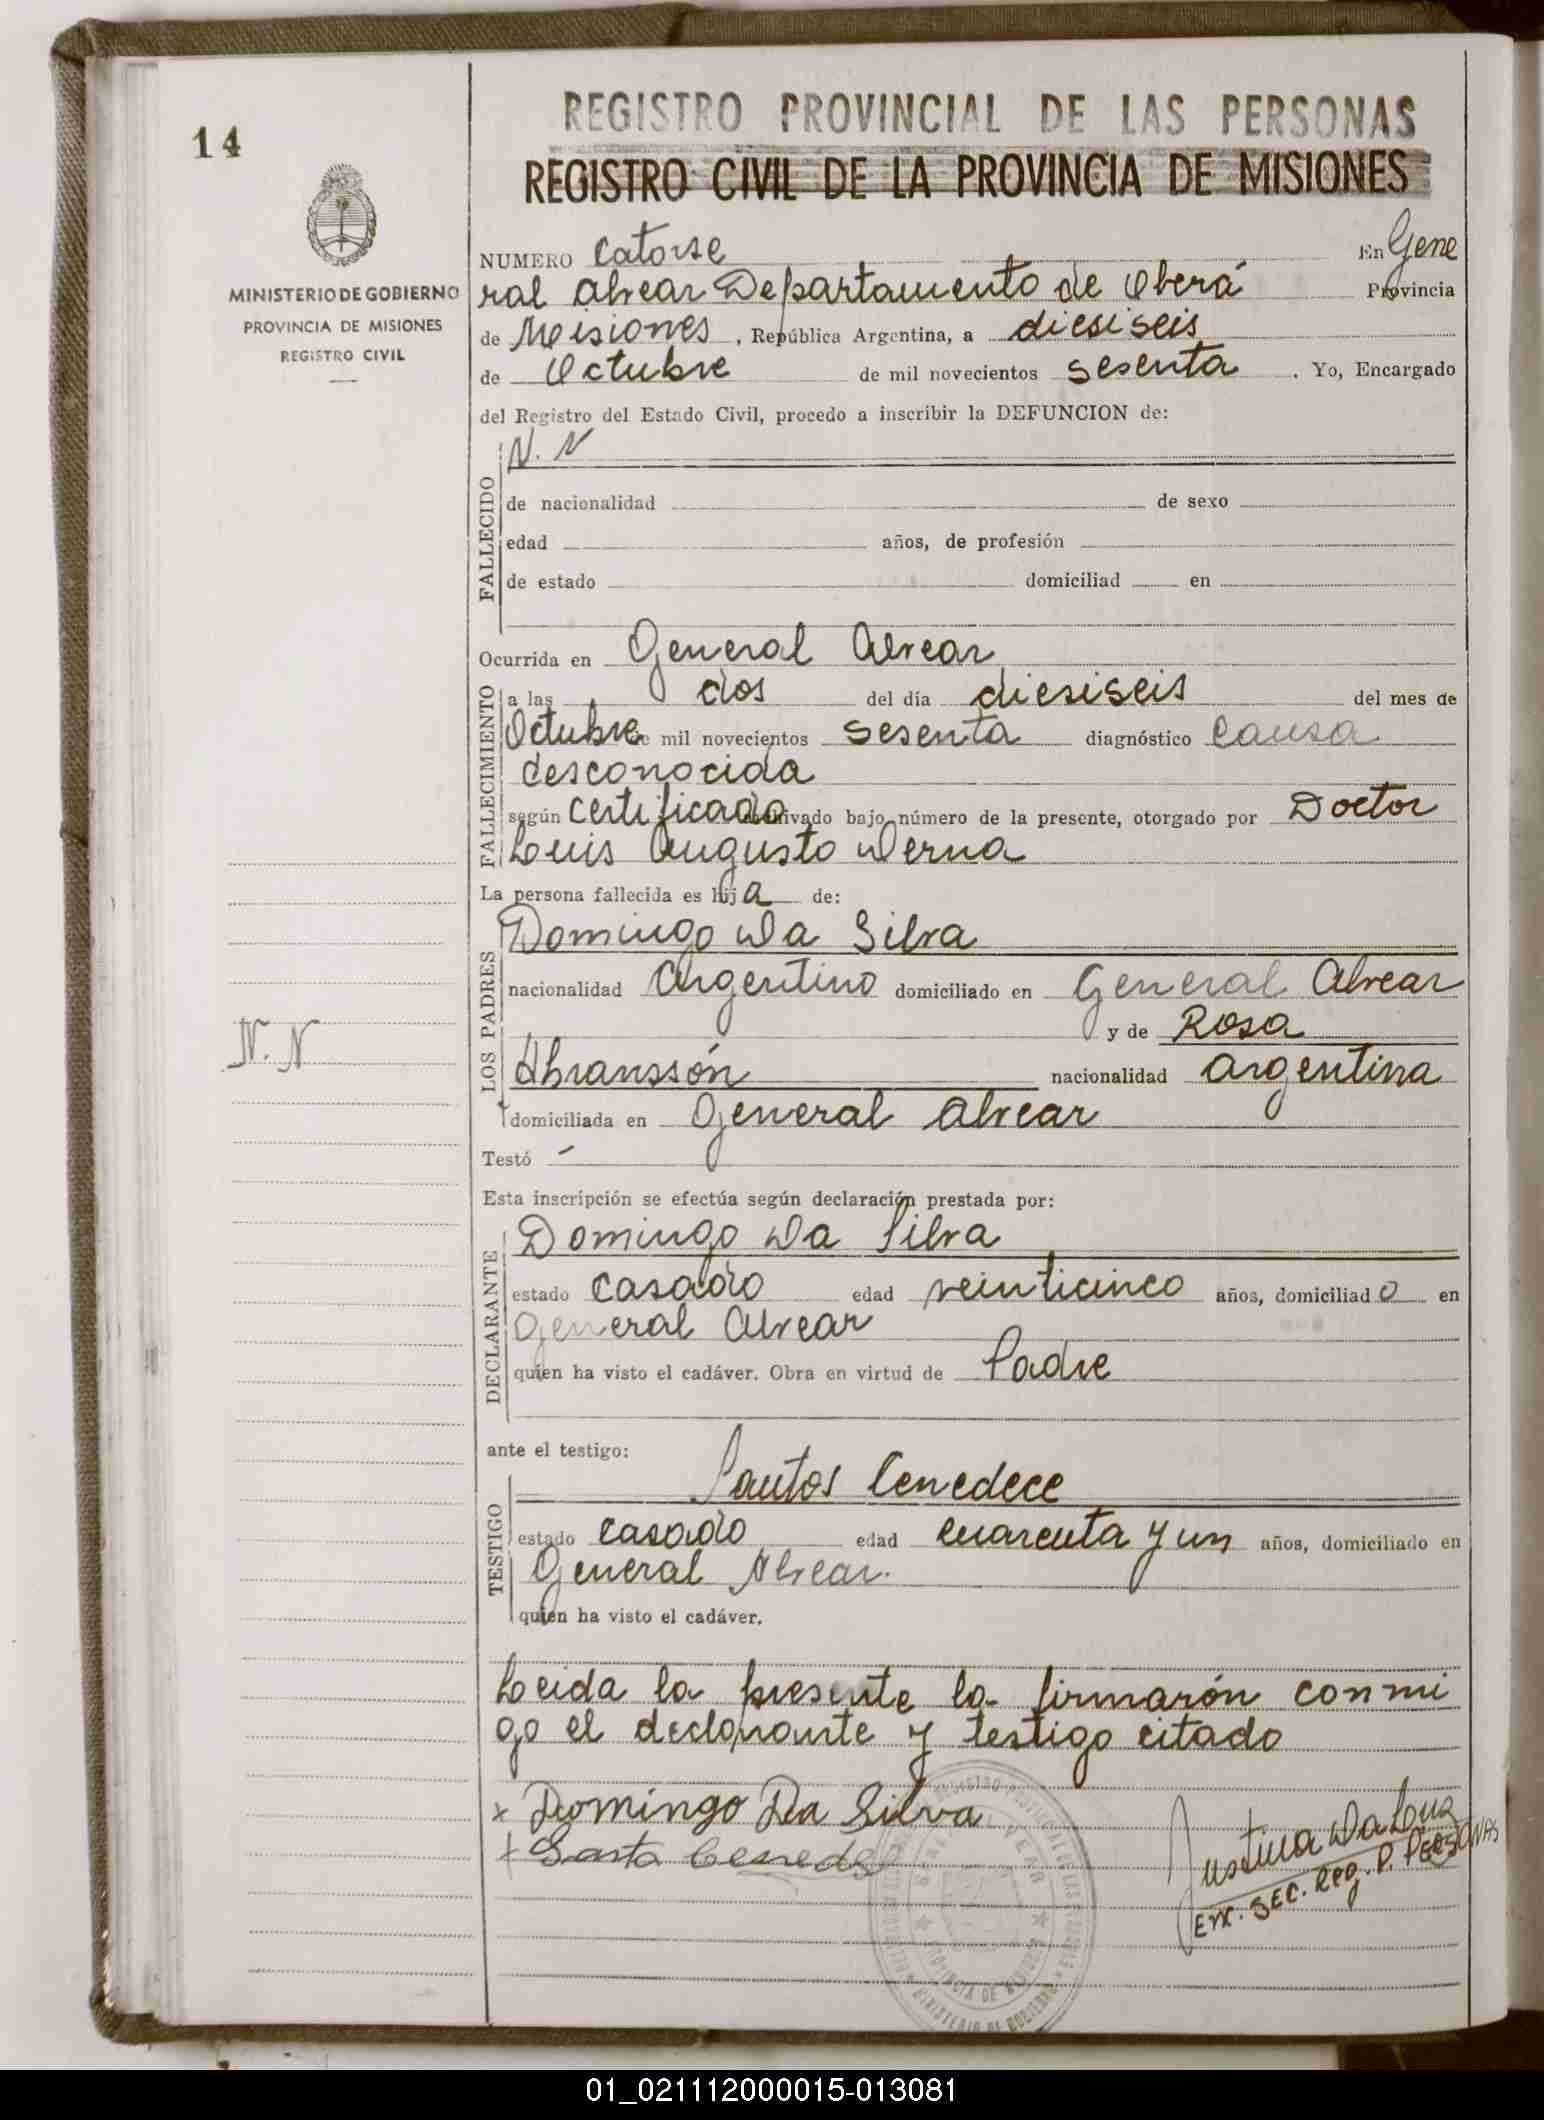 14
MINISTERIO DE GOBIERNO
PROVINCIA DE MISIONES
REGISTRO CIVIL
REGISTRO PROVINCIAL DE LAS PERSONAS
REGISTRO CIVIL DE LA PROVINCIA DE MISIONES
NUMERO Catorse En Gene
ral Alvear Departamento de Oberá Provincia
de Misiones, República Argentina, a diesiseis
de Octubre de mil novecientos sesenta. Yo, Encargado
del Registro del Estado Civil, procedo a inscribir la DEFUNCION de:
N. N
FALLECIDO
de nacionalidad de sexo
edad años, de profesión
de estado domiciliad en
Ocurrida en General Alvear
FALLECIMIENTO
a las dos del día diesiseis del mes de
Octubre de mil novecientos sesenta diagnóstico Causa
desconocida
según certificado archivado bajo número de la presente, otorgado por Doctor
Luis Augusto Derna
La persona fallecida es hija de:
LOS PADRES
Domingo Da Silva
nacionalidad Argentino domiciliado en General Alvear
y de Rosa
N. N
Abranssón nacionalidad argentina
domiciliada en General Alvear
Testó -
Esta inscripción se efectúa según declaración prestada por:
DECLARANTE
Domingo Da Silva
estado Casado edad veinticinco años, domiciliado en
General Alvear
quien ha visto el cadáver. Obra en virtud de Padre
ante el testigo:
TESTIGO
Santos Cenedece
estado casado edad cuarenta y un años, domiciliado en
General Alvear.
quien ha visto el cadáver.
Leida la presente la firmarón conmi
go el declarante y testigo citado
x Domingo Da Silva
Justina Da Luz
Enc. Sec. Reg. P. PERSONAS
01_021112000015-013081